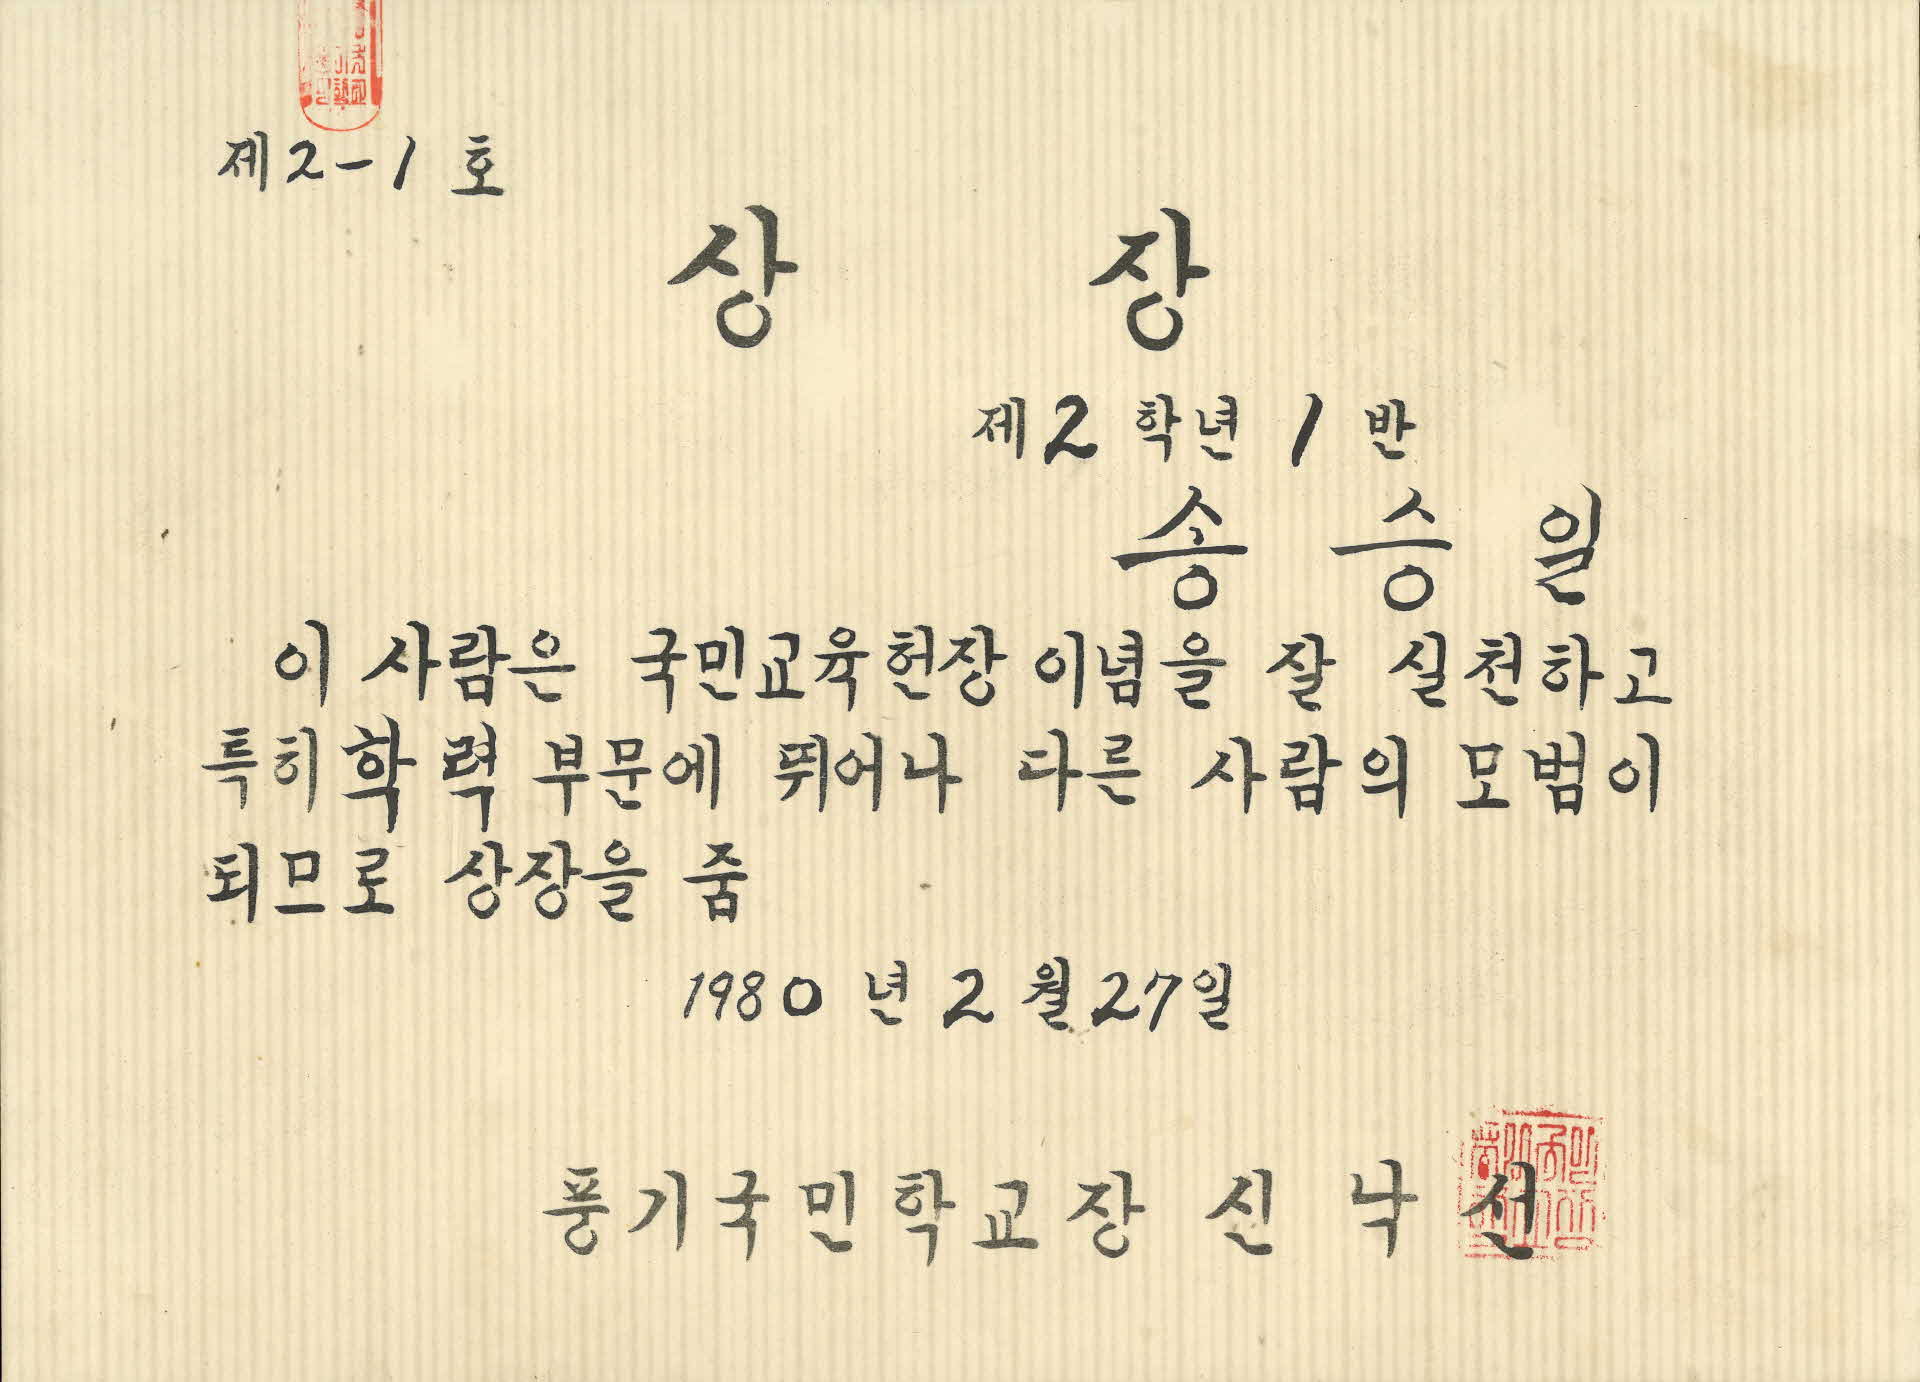 제2-1호
상 장
제2학년 1반
송승일
이 사람은 국민교육헌장 이념을 잘 실천하고
특히 학력 부문에 뛰어나 다른 사람의 모범이
되므로 상장을 줌
1980년 2월 27일
풍기국민학교장 신낙선